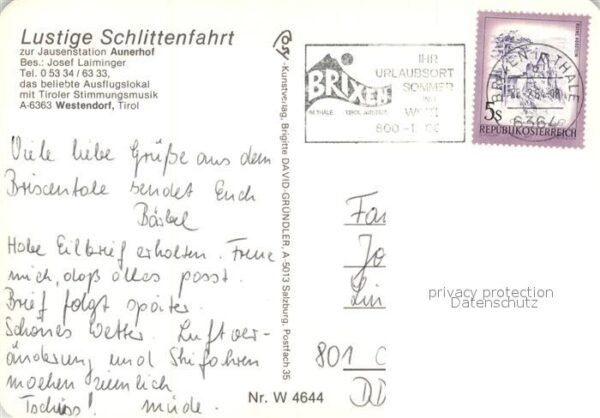 Lustige Schlittenfahrt
zur Jausenstation Aunerhof
Bes.: Josef Laiminger
Tel. 0 53 34 / 63 33,
das beliebte Ausflugslokal
mit Tiroler Stimmungsmusik
A-6363 Westendorf, Tirol
Viele liebe Grüße aus dem
Brixentale sendet Euch
Bärbel
Habe Eilbrief erhalten. Freue
mich, daß alles passt.
Brief folgt später.
Schönes Wetter. Luftver-
änderung und Skifahren
machen ziemlich
Tschüss! müde.
-Kunstverlag, Brigitte DAVID-GRÜNDLER, A-5013 Salzburg, Postfach 35
Nr. W 4644
BRIXEN
IM THALE
IHR
URLAUBSORT
SOMMER
5s
REPUBLIK ÖSTERREICH
BRIXEN IM THALE
6364
Fa
Jo
Lin
801
DD
privacy protection
Datenschutz